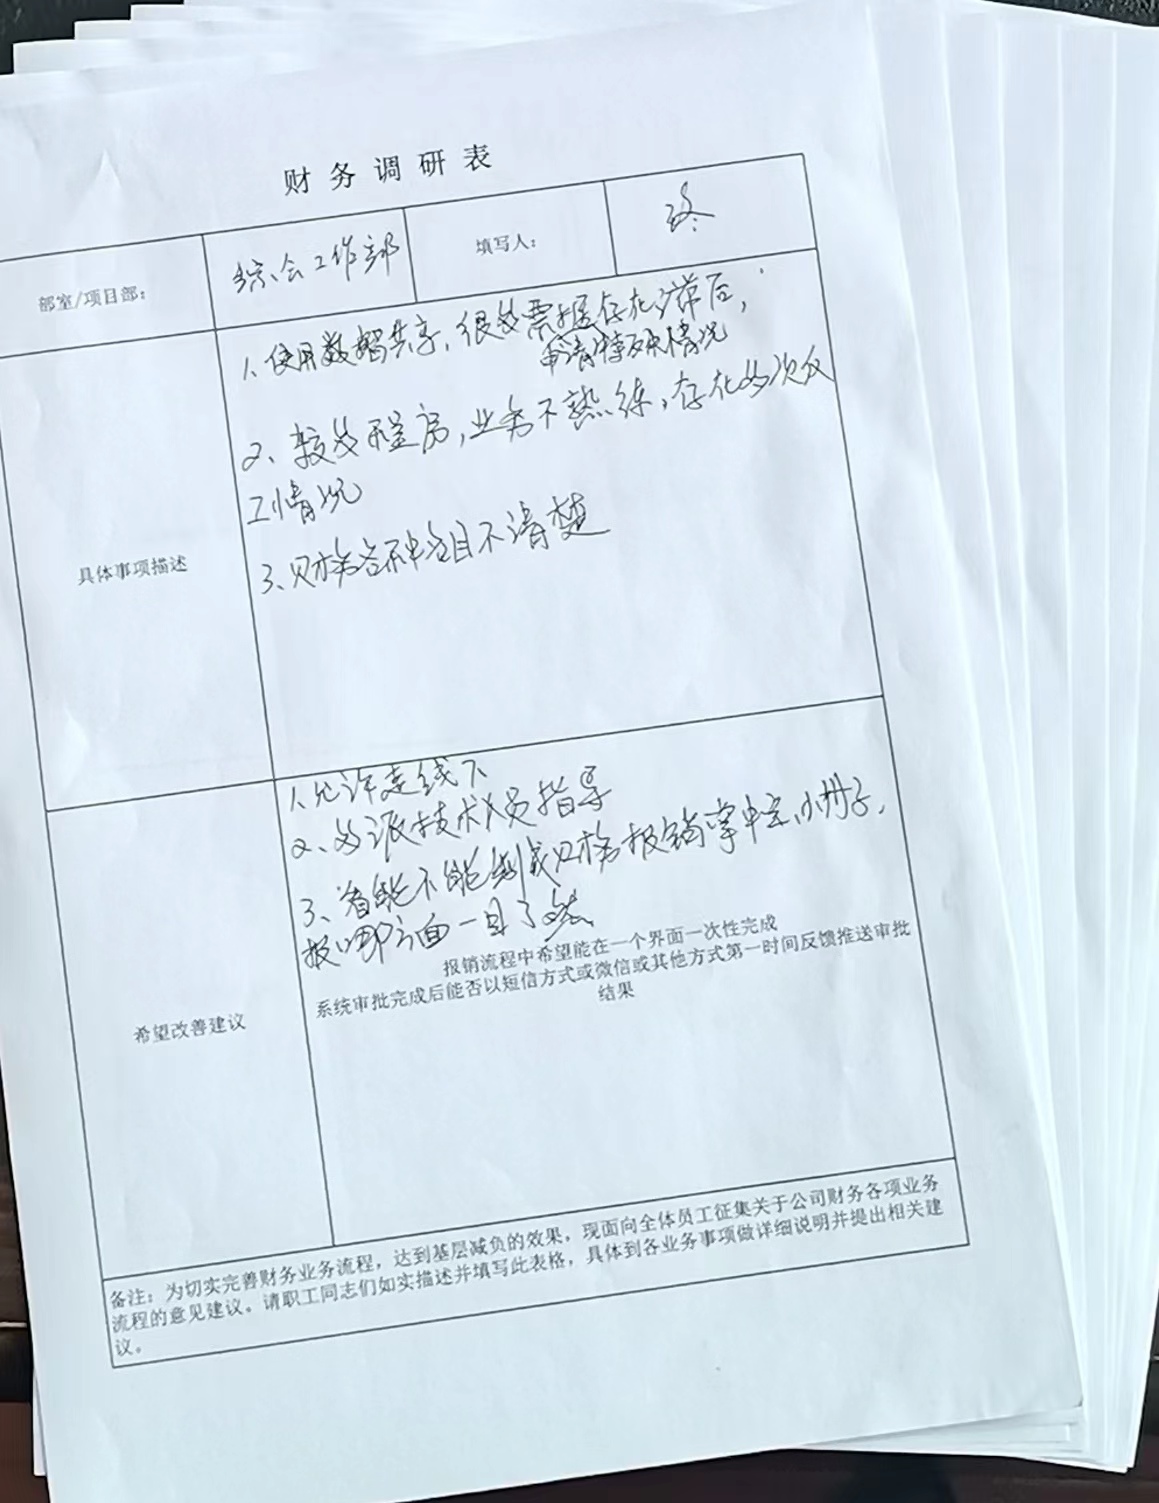 财务调研表
部室/项目部: 综合工作部 填写人:
1、使用数据共享,很多票据存在滞后,
申请特殊情况
2、较多 ,业务不熟练,存在多次返
工情况
具体事项描述
3、财务各种科目不清楚
1、允许走线下
2、多派技术人员指导
3、看能不能制成财务报销掌中宝小册子,
报哪方面一目了然
报销流程中希望能在一个界面一次性完成
系统审批完成后能否以短信方式或微信或其他方式第一时间反馈推送审批
结果
希望改善建议
备注:为切实完善财务业务流程,达到基层减负的效果,现面向全体员工征集关于公司财务各项业务
流程的意见建议。请职工同志们如实描述并填写此表格,具体到各业务事项做详细说明并提出相关建
议。